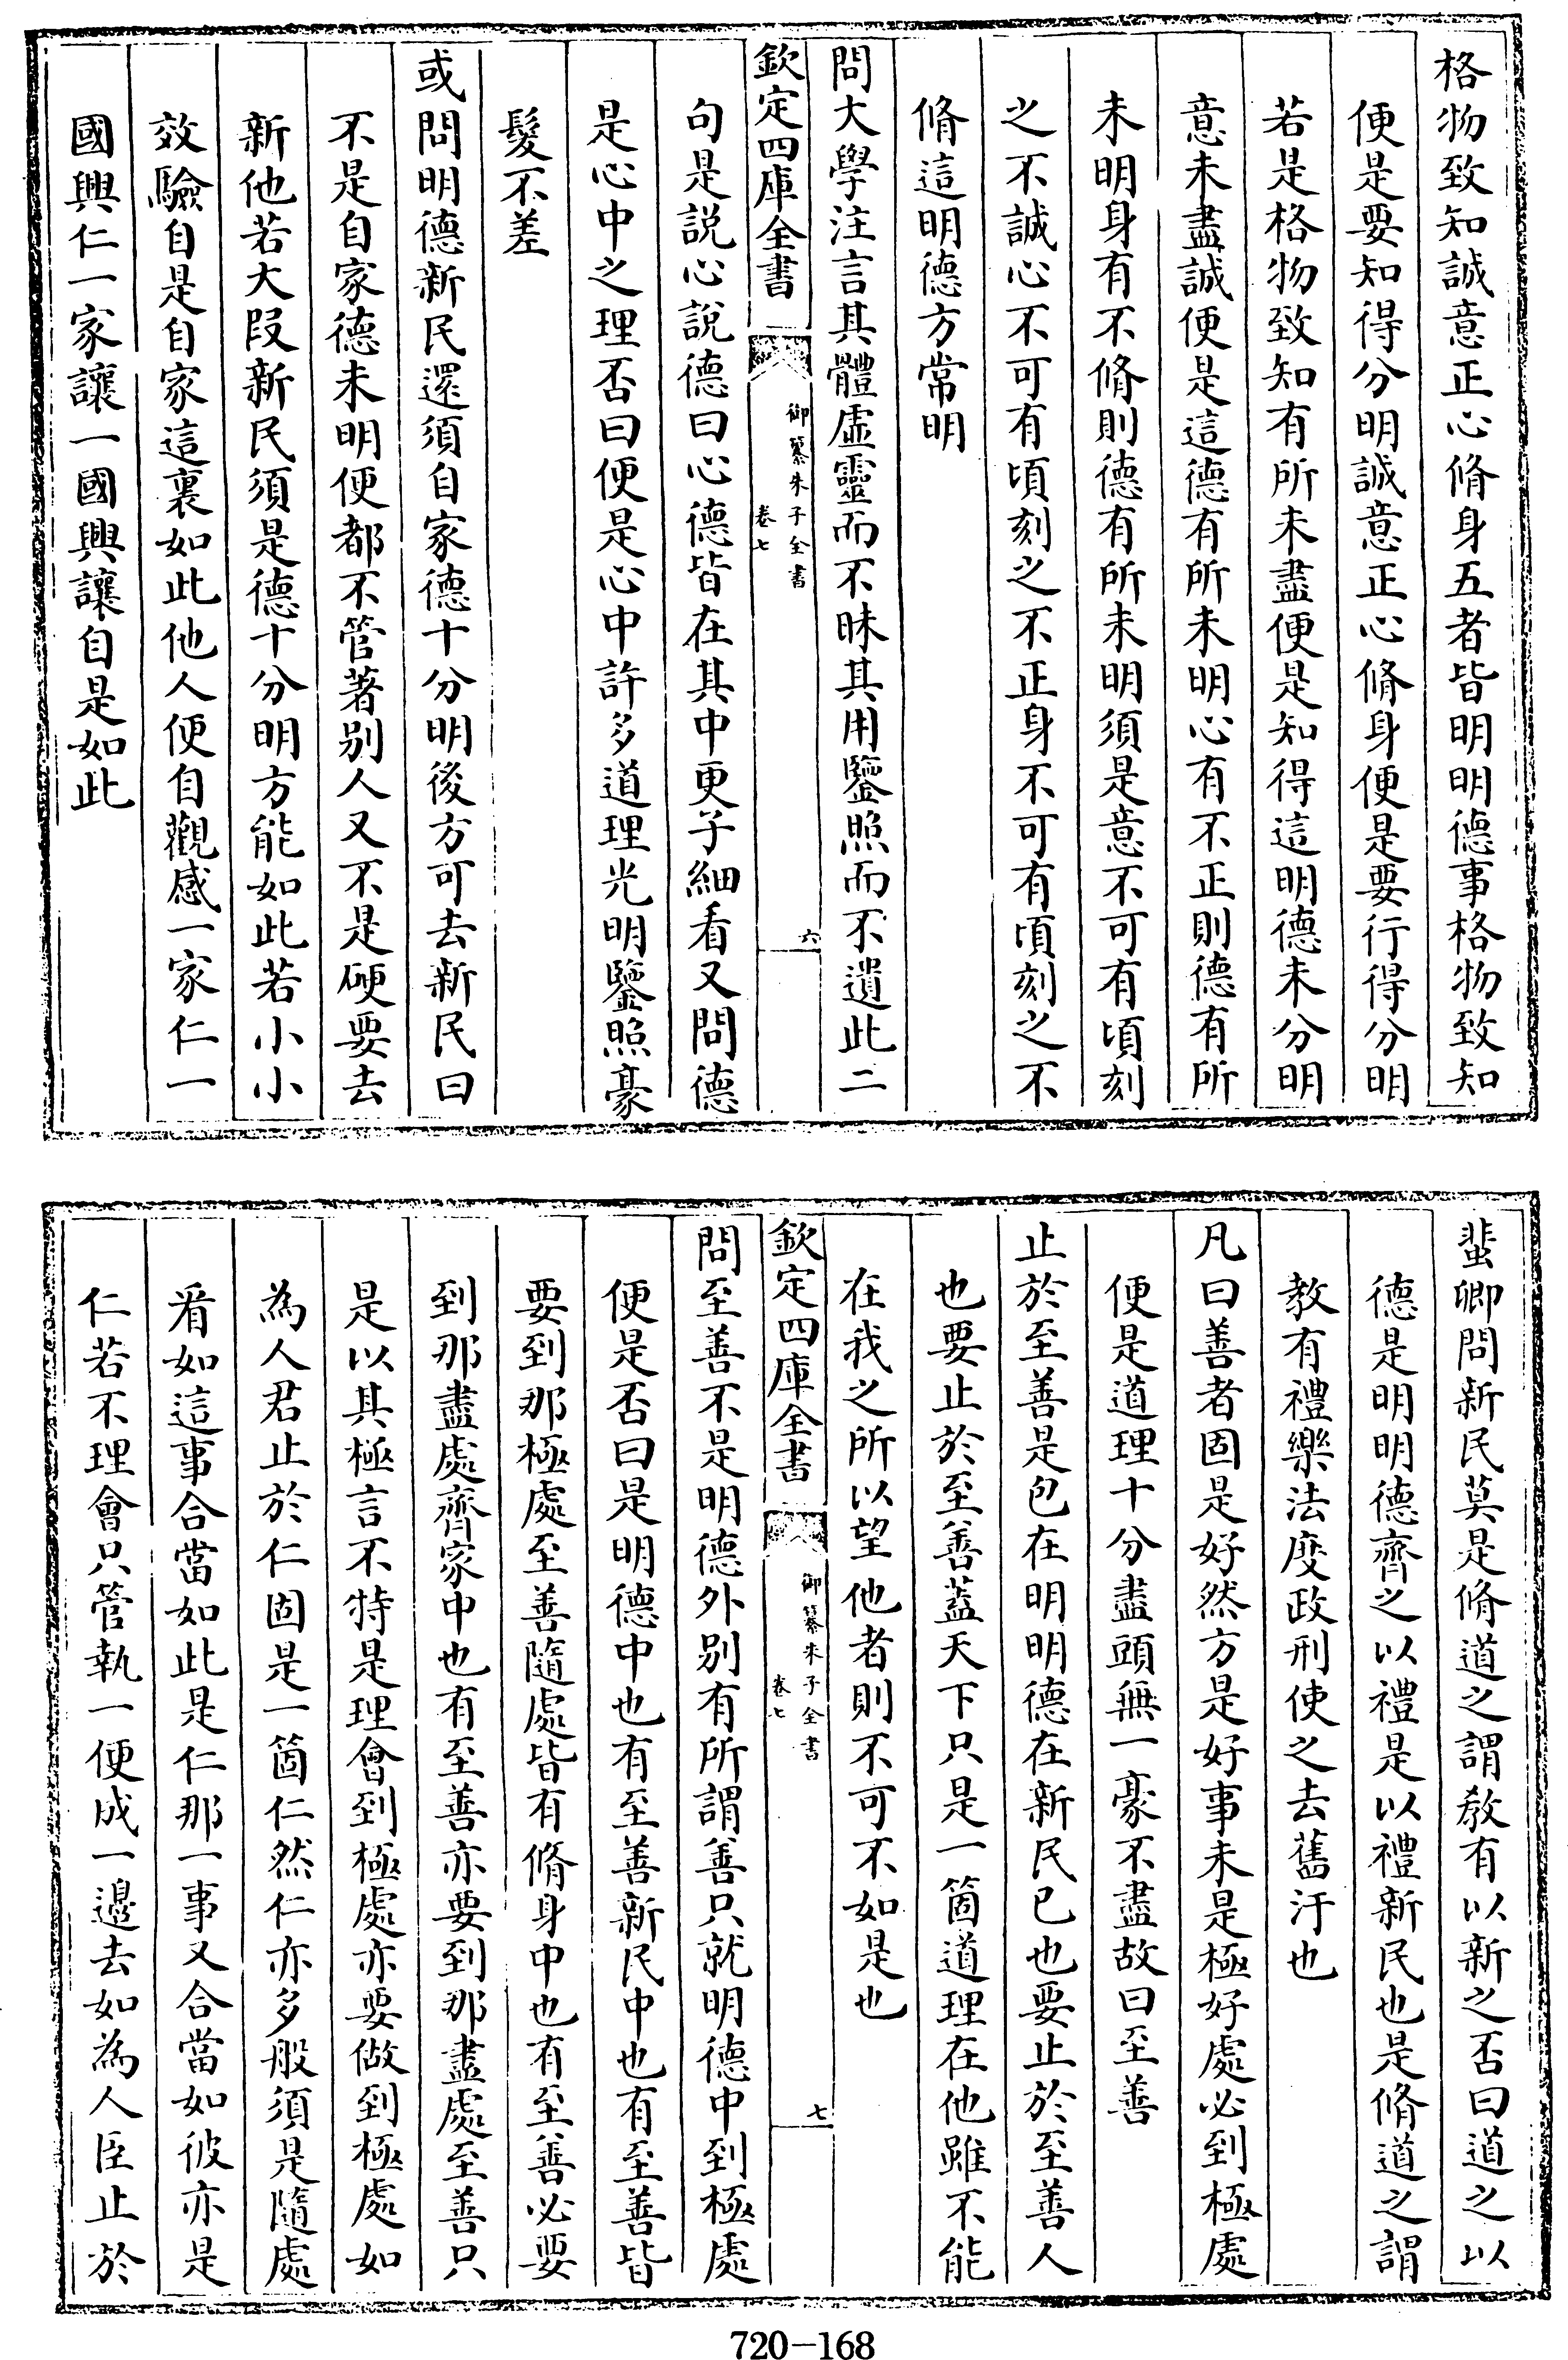 格物致知誠意正心脩身五者皆明明德事格物致知
便是要知得分明誠意正心脩身便是要行得分明
若是格物致知有所未盡便是知得這明德未分明
意未盡誠便是這德有所未明心有不正則德有所
未明身有不脩則德有所未明須是意不可有頃刻
之不誠心不可有頃刻之不正身不可有頃刻之不
脩這明德方常明
問大學注言其體虛靈而不昧其用鑒照而不遺此二
欽定四庫全書
御纂朱子全書
卷七
六
句是説心説德曰心德皆在其中更子細看又問德
是心中之理否曰便是心中許多道理光明鑒照豪
髮不差
或問明德新民還須自家德十分明後方可去新民曰
不是自家德未明便都不管著別人又不是硬要去
新他若大段新民須是德十分明方能如此若小小
效驗自是自家這裏如此他人便自觀感一家仁一
國興仁一家讓一國興讓自是如此
蜚卿問新民莫是脩道之謂教有以新之否曰道之以
德是明明德齊之以禮是以禮新民也是脩道之謂
教有禮樂法度政刑使之去舊汙也
凡曰善者固是好然方是好事未是極好處必到極處
便是道理十分盡頭無一豪不盡故曰至善
止於至善是包在明明德在新民已也要止於至善人
也要止於至善蓋天下只是一箇道理在他雖不能
在我之所以望他者則不可不如是也
欽定四庫全書
御纂朱子全書
卷七
七
問至善不是明德外別有所謂善只就明德中到極處
便是否曰是明德中也有至善新民中也有至善皆
要到那極處至善隨處皆有脩身中也有至善必要
到那盡處齊家中也有至善亦要到那盡處至善只
是以其極言不特是理會到極處亦要做到極處如
為人君止於仁固是一箇仁然仁亦多般須是隨處
看如這事合當如此是仁那一事又合當如彼亦是
仁若不理會只管執一便成一邊去如為人臣止於
720-168